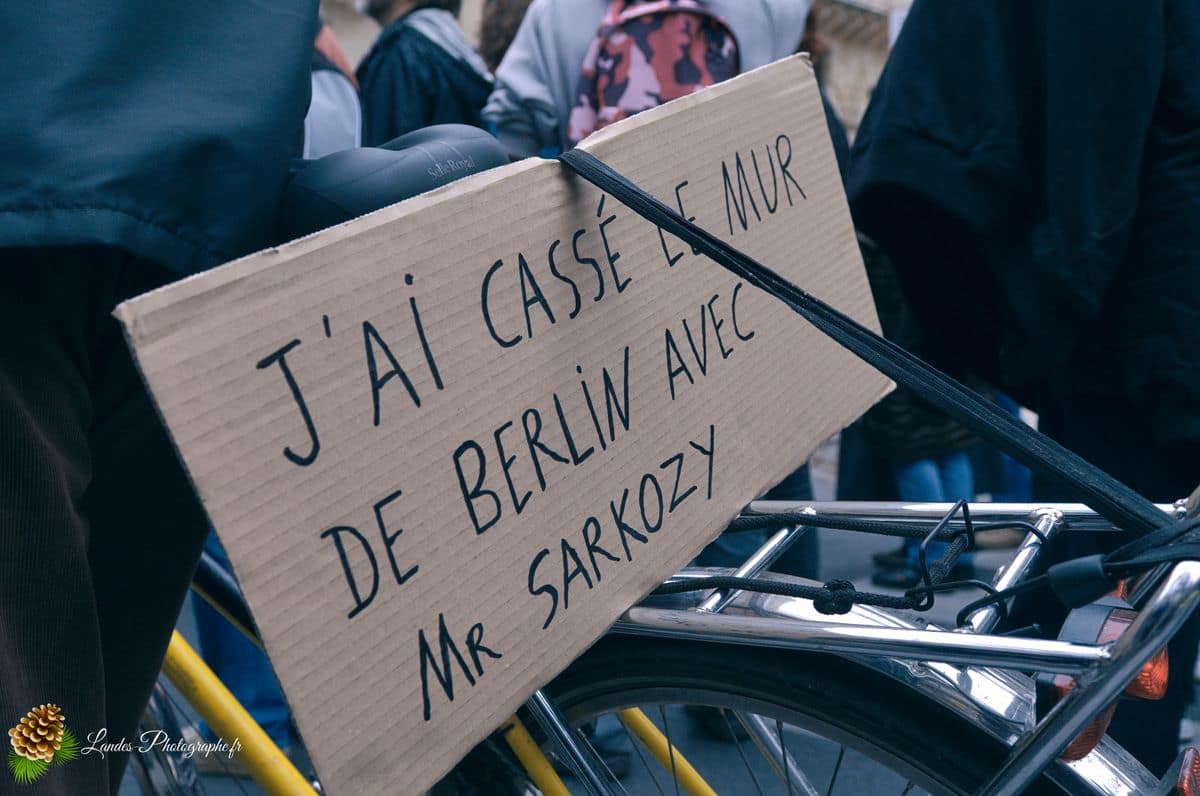 Selle Royal
J'Ai CASSÉ LE MUR
DE BERLiN AVEC
Mr SARKOZY
Landes-Photographe.fr